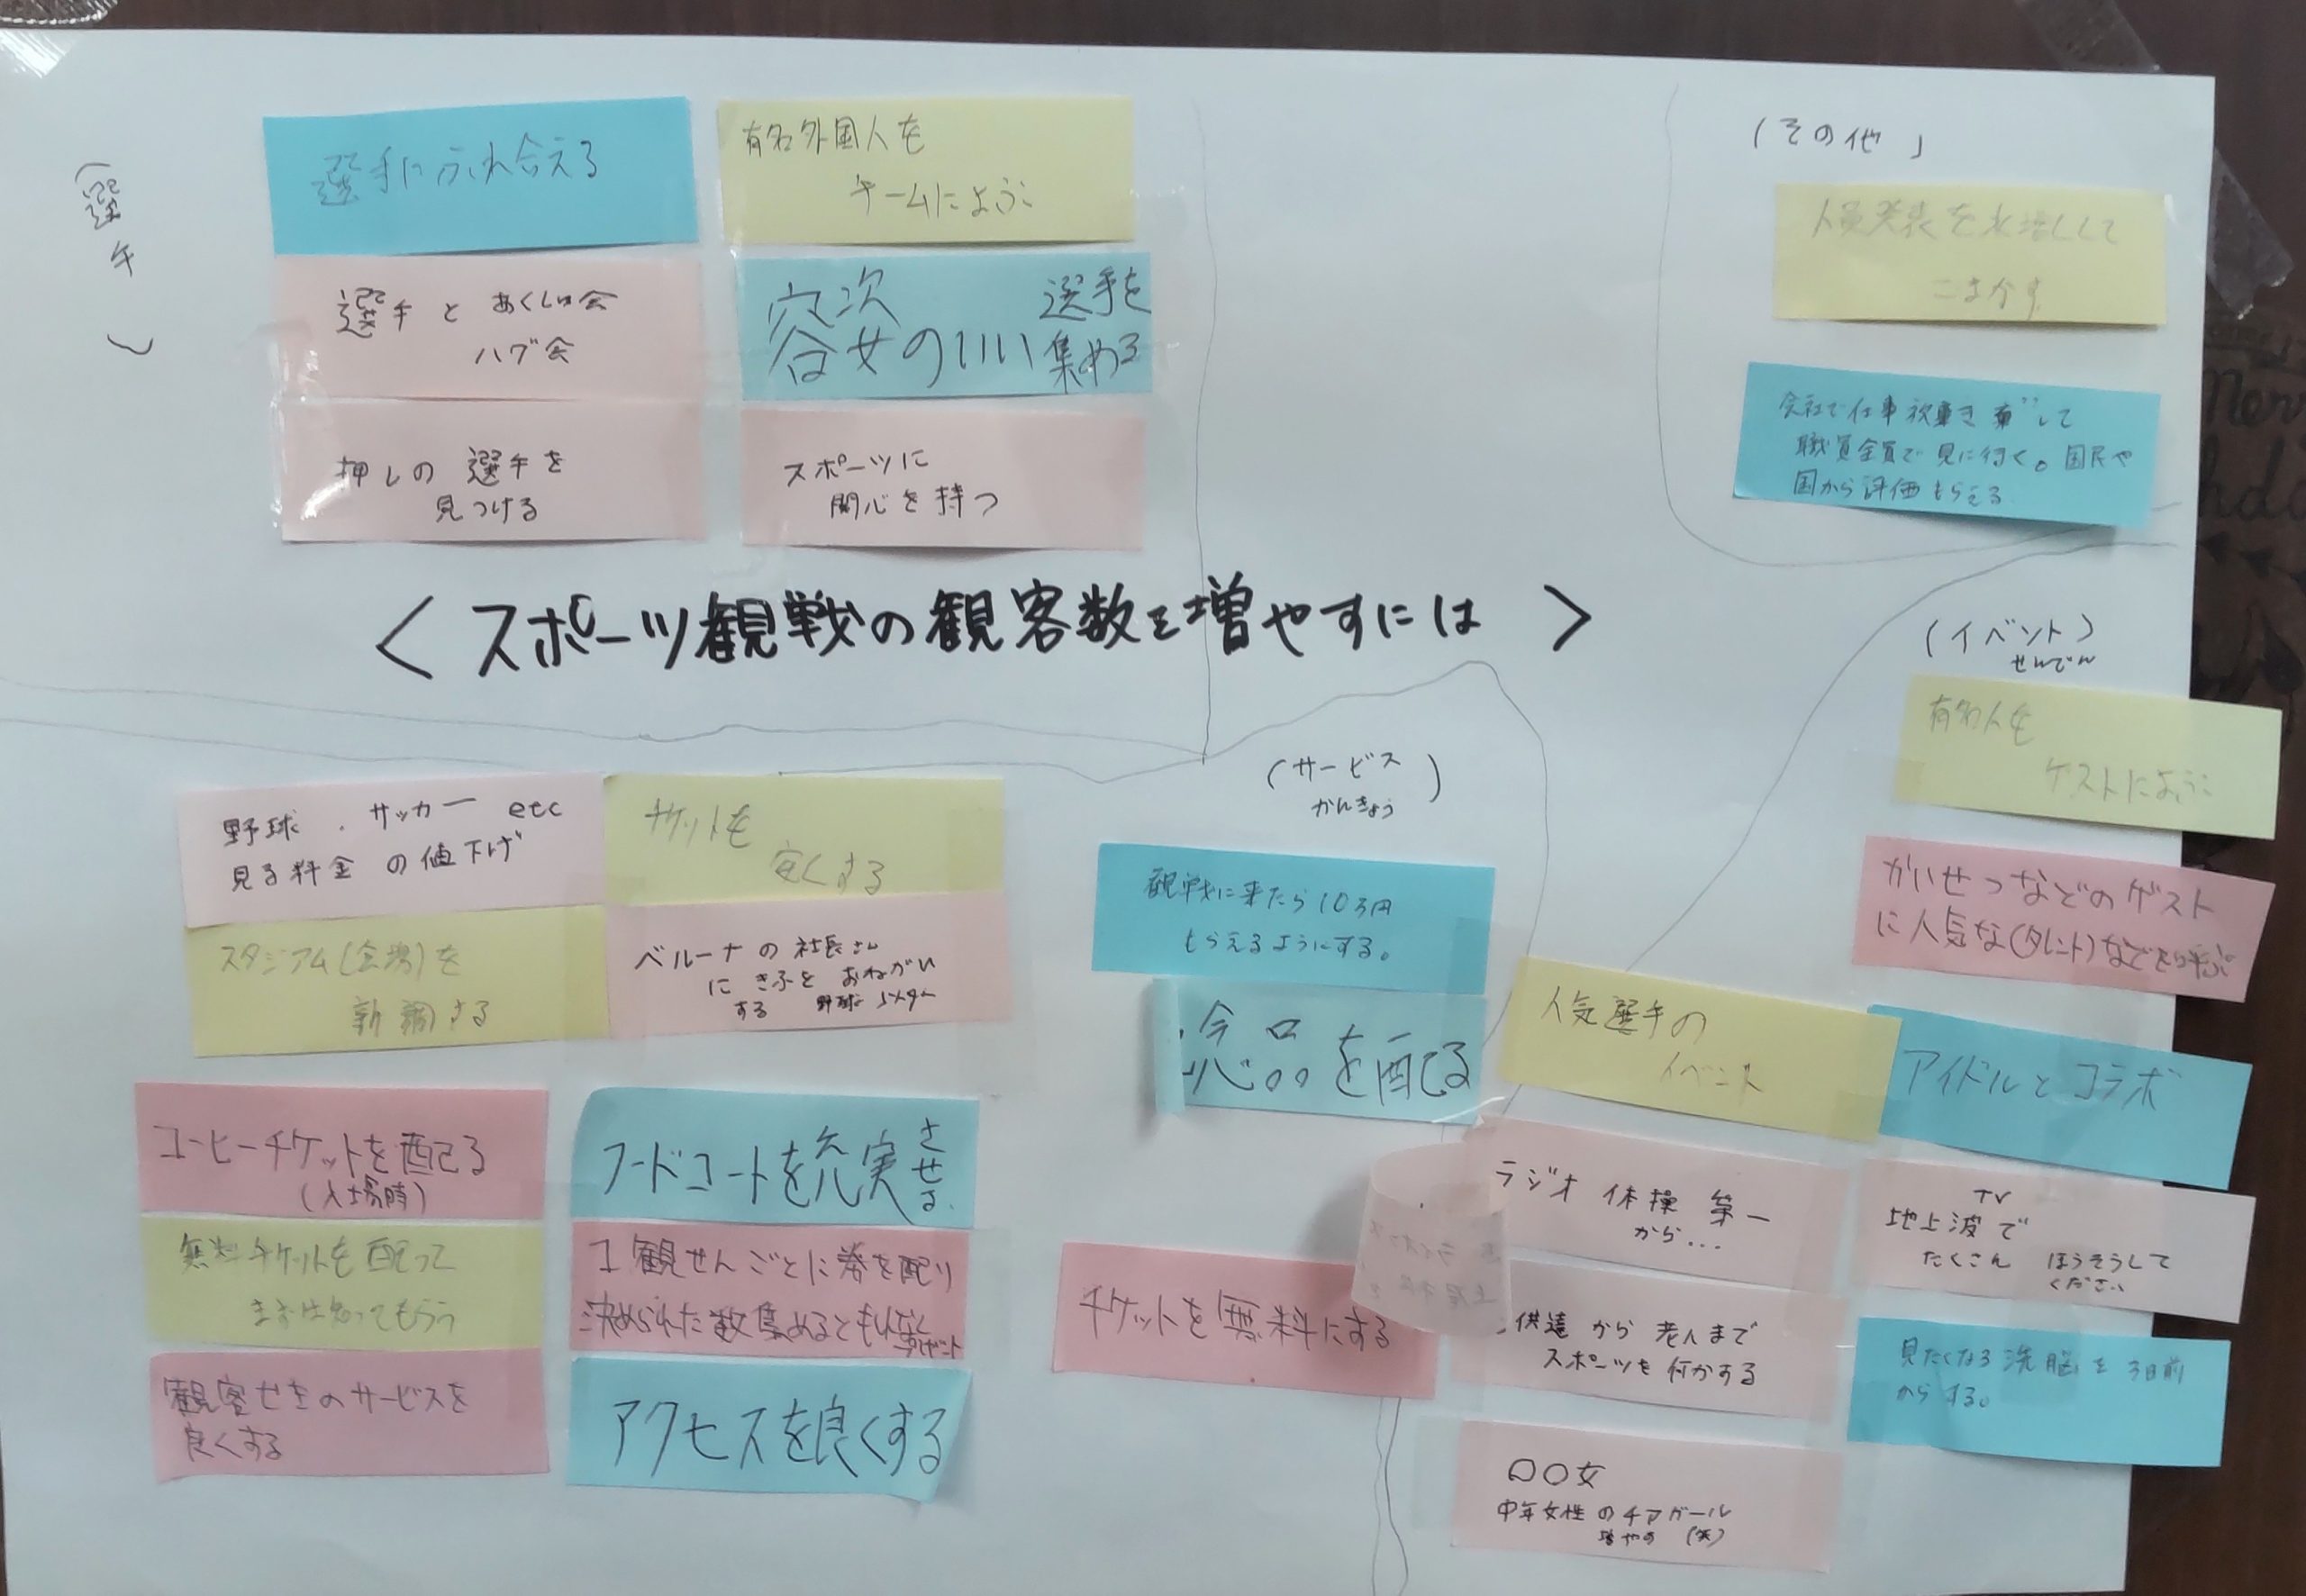 (選手)
選手にふれ合える
有名外国人を
チームによぶ
選手と あくしゅ会
ハグ会
容姿のいい選手を
集める
押しの選手を
見つける
スポーツに
関心を持つ
<スポーツ観戦の観客数を増やすには>
(その他」
人員発表を水増しして
ごまかす
会社で仕事
して
職員全員で見に行く。国民や
国から評価もらえる
(イベント)
せんでん
有名人を
ゲストによぶ
かいせつなどのゲスト
に人気な(タレント)などを呼ぶ
人気選手の
イベント
アイドルとコラボ
ラジオ体操第一
から...
TV
地上波で
たくさん ほうそうして
ください
供達から老人まで
スポーツを何かする
見たくなる洗脳を3日前
からする。
〇〇女
中年女性のチアガール
増やす (笑)
(サービス)
かんきょう
野球.サッカー etc
見る料金の値下げ
チケットを
安くする
スタジアム(会場)を
新調する
ベルーナの社長さん
にきふをおねがい
する 野球
観戦に来たら10万円
もらえるようにする。
品を配る
コーヒーチケットを配る
(入場時)
フードコートを充実させる
無料チケットを配って
まずは知ってもらう
1観せんごとに券を配り
決められた数集めるともれなく
プレゼント
観客せきのサービスを
良くする
アクセスを良くする
チケットを無料にする